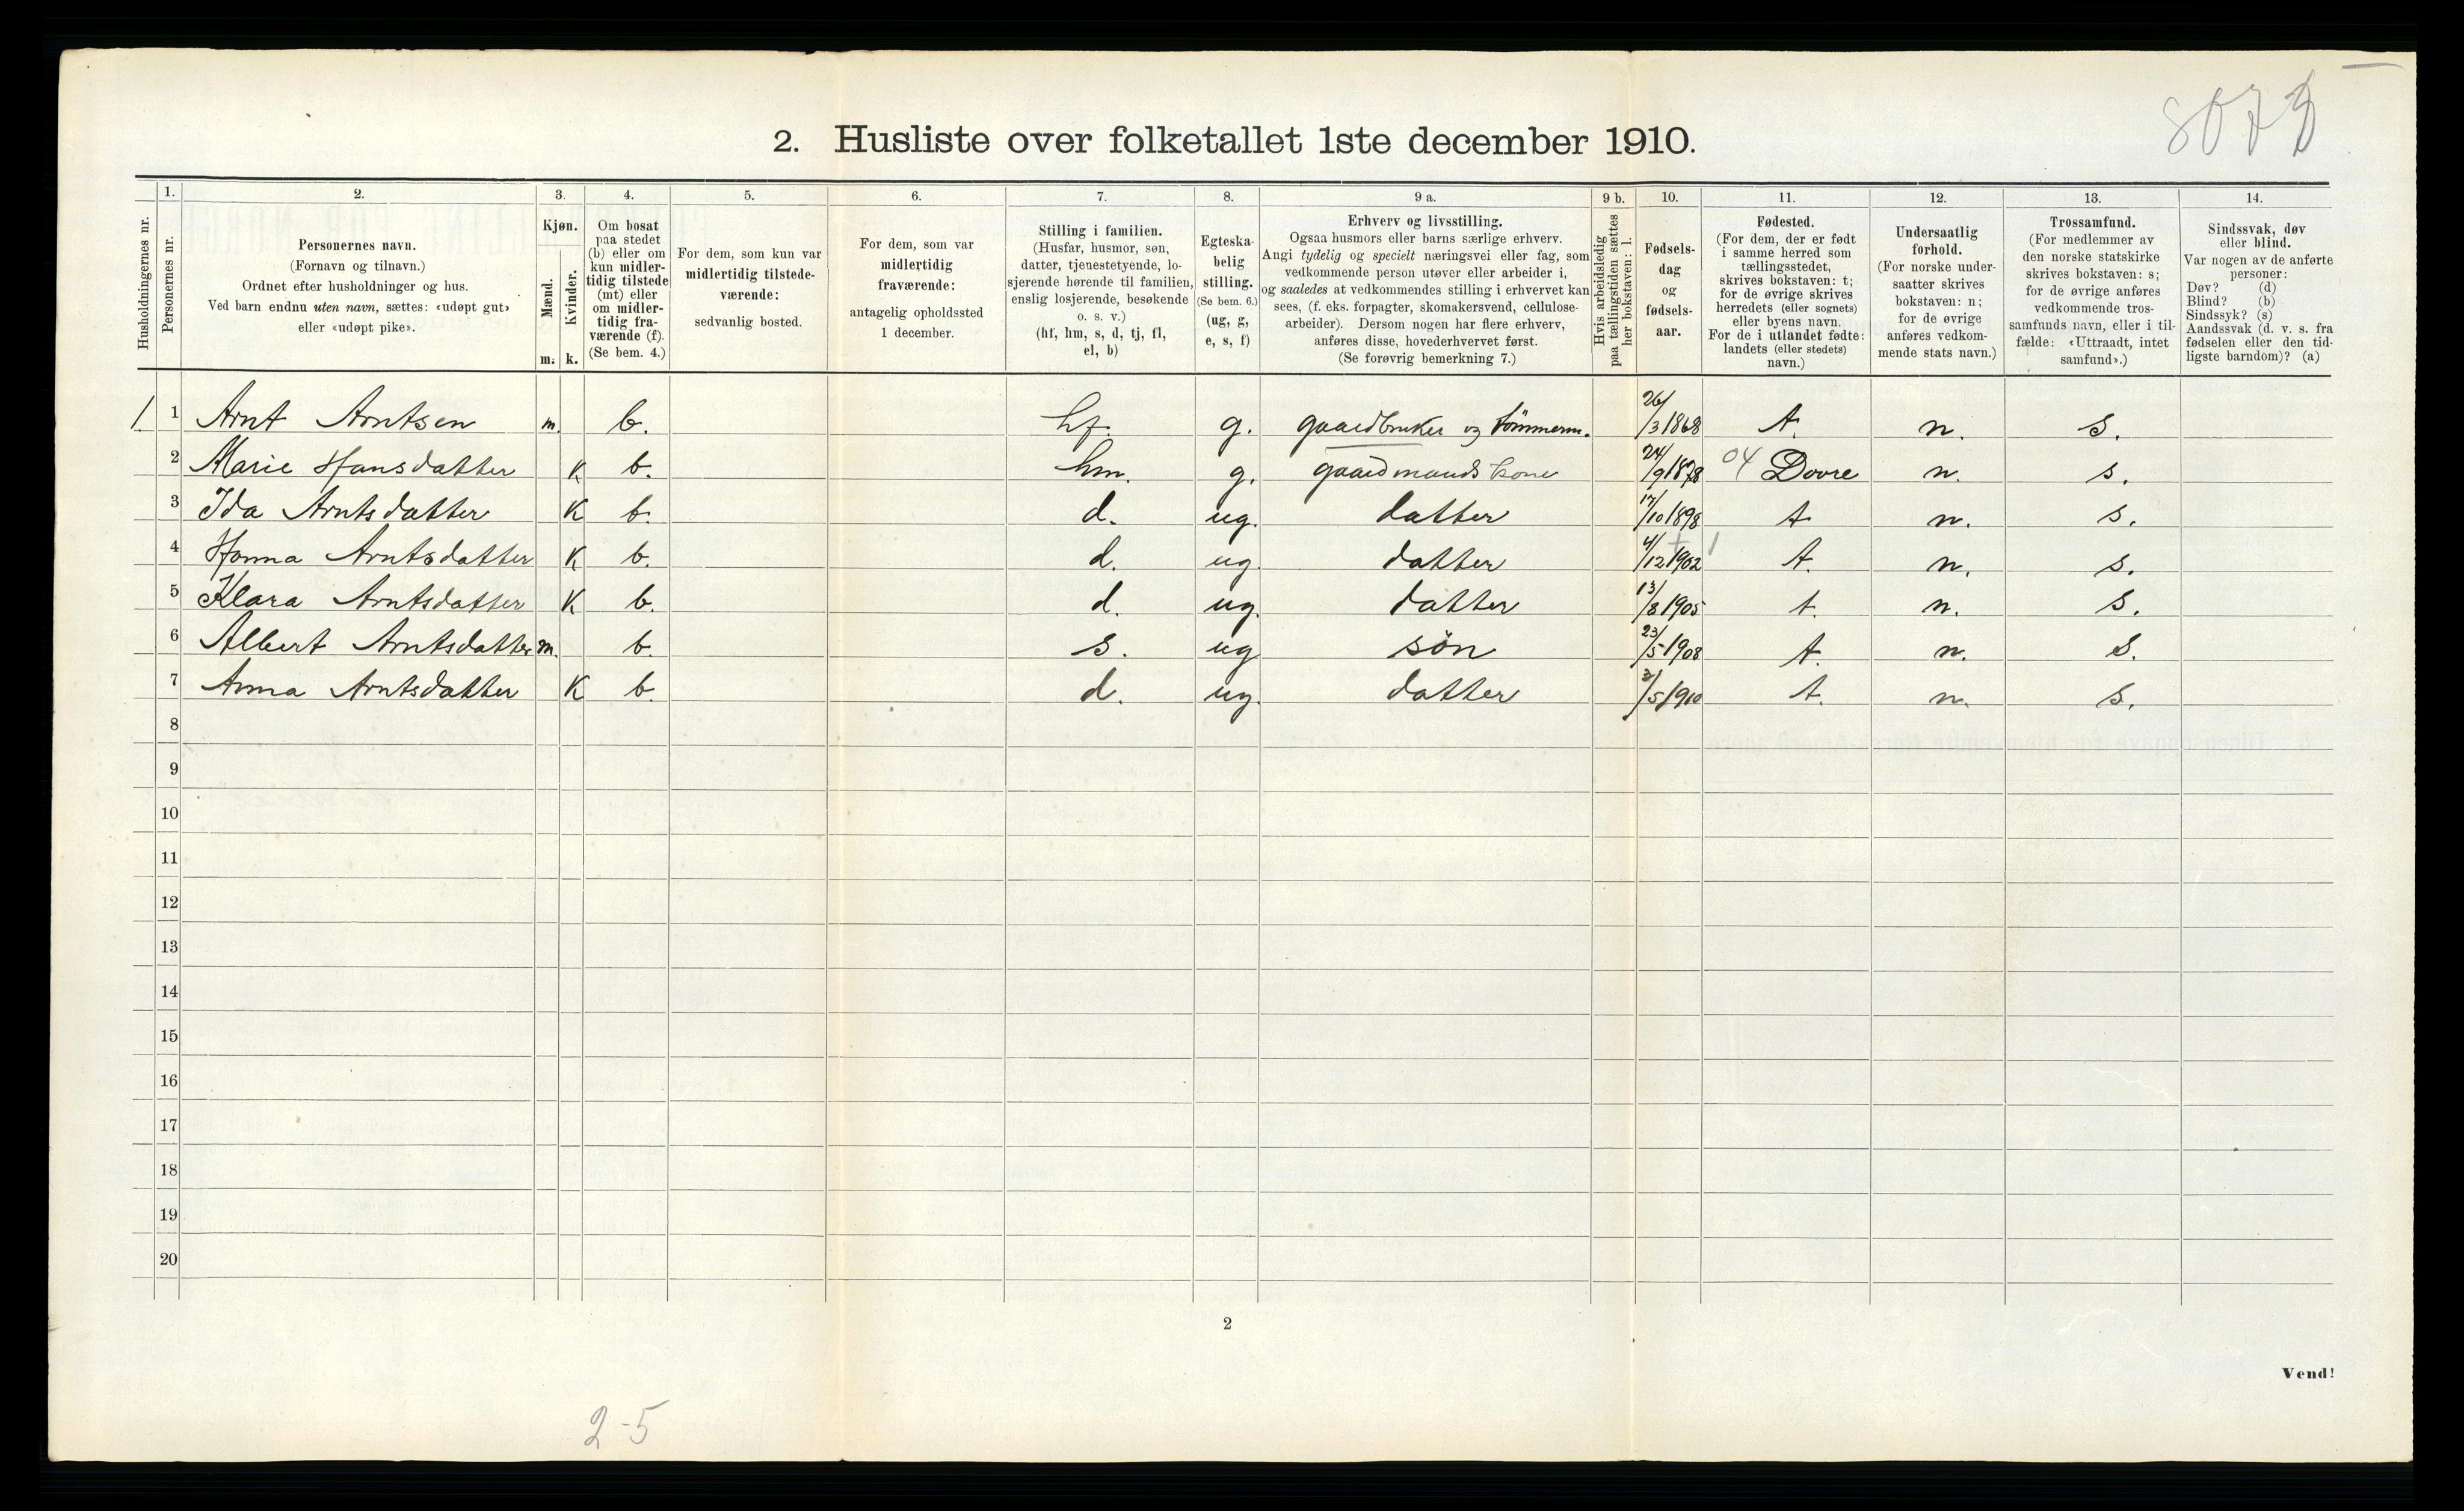 8073
2. Husliste over folketallet 1ste december 1910.
Husholdningernes nr.
1.
Personernes nr.
2.
Personernes navn.
(Fornavn og tilnavn.)
Ordnet efter husholdninger og hus.
Ved barn endnu uten navn, sættes: «udøpt gut»
eller «udøpt pike».
3.
Kjøn.
Mænd.
Kvinder.
m. k.
4.
Om bosat
paa stedet
(b) eller om
kun midler-
tidig tilstede
(mt) eller
om midler-
tidig fra-
værende (f).
(Se bem. 4.)
5.
For dem, som kun var
midlertidig tilstede-
værende:
sedvanlig bosted.
6.
For dem, som var
midlertidig
fraværende:
antagelig opholdssted
1 december.
7.
Stilling i familien.
(Husfar, husmor, søn,
datter, tjenestetyende, lo-
sjerende hørende til familien,
enslig losjerende, besøkende
o. s. v.)
(hf, hm, s, d, tj, fl,
el, b)
8.
Egteska-
belig
stilling.
(Se bem. 6.)
(ug, g,
e, s, f)
9 a.
Erhverv og livsstilling.
Ogsaa husmors eller barns særlige erhverv.
Angi tydelig og specielt næringsvei eller fag, som
vedkommende person utøver eller arbeider i,
og saaledes at vedkommendes stilling i erhvervet kan
sees, (f. eks. forpagter, skomakersvend, cellulose-
arbeider). Dersom nogen har flere erhverv,
anføres disse, hovederhvervet først.
(Se forøvrig bemerkning 7.)
9 b.
Hvis arbeidsledig
paa tællingstiden sættes
her bokstaven: l.
10.
Fødsels-
dag
og
fødsels-
aar.
11.
Fødested.
(For dem, der er født
i samme herred som
tællingsstedet,
skrives bokstaven: t;
for de øvrige skrives
herredets (eller sognets)
eller byens navn.
For de i utlandet fødte:
landets (eller stedets)
navn.)
12.
Undersaatlig
forhold.
(For norske under-
saatter skrives
bokstaven: n;
for de øvrige
anføres vedkom-
mende stats navn.)
13.
Trossamfund.
(For medlemmer av
den norske statskirke
skrives bokstaven: s;
for de øvrige anføres
vedkommende tros-
samfunds navn, eller i til-
fælde: «Uttraadt, intet
samfund».)
14.
Sindssvak, døv
eller blind.
Var nogen av de anførte
personer:
Døv? (d)
Blind? (b)
Sindssyk? (s)
Aandssvak (d. v. s. fra
fødselen eller den tid-
ligste barndom)? (a)
1 1 Arnt Arntsen m. b. hf. g. gaardbruker og tömmerm. 26/3 1868 t. n. s.
2 Marie Hansdatter K b. hm. g. gaardmandskone 24/9 1878 04 Dovre n. s.
3 Ida Arntsdatter K b. d. ug. datter 17/10 1898 t n. s.
4 Hanna Arntsdatter K b. d. ug. datter 4/12 1902 t. n. s.
5 Klara Arntsdatter K b. d. ug. datter 13/8 1905 t. n. s.
6 Albert Arntsdatter m. b. s. ug sön 23/5 1908 t. n. s.
7 Anna Arntsdatter K b d. ug. datter /5 1910 t. n. s.
8
9
10
11
12
13
14
15
16
17
18
19
20
2
Vend!
2-5